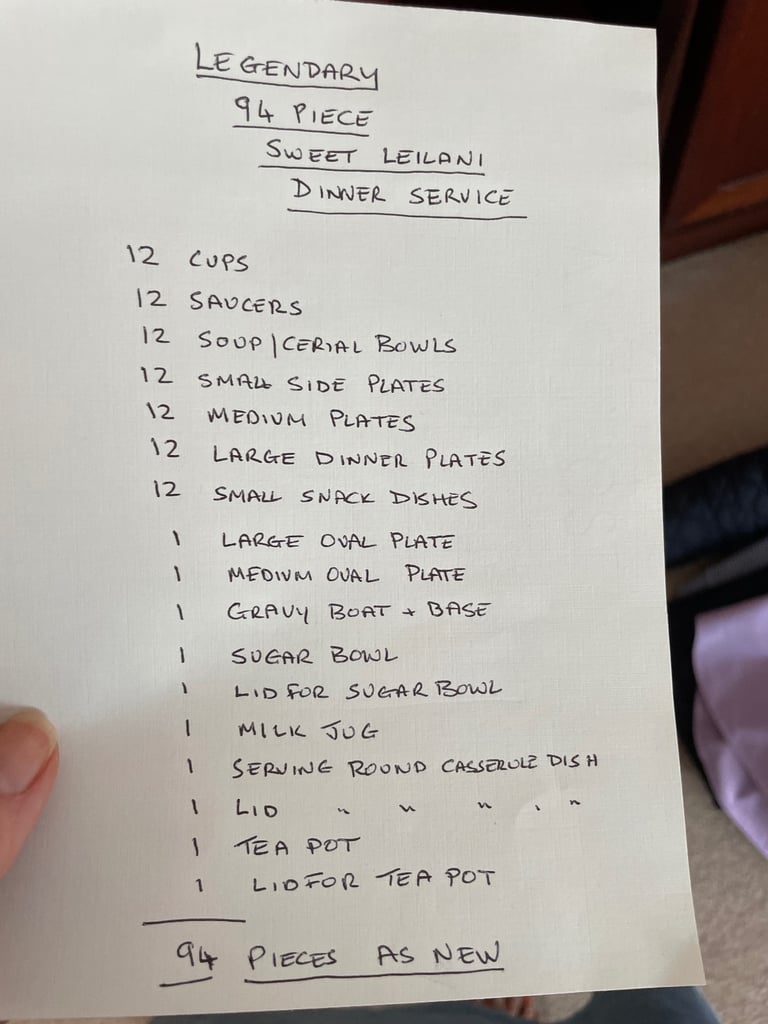 LEGENDARY
94 PIECE
SWEET LEILANI
DINNER SERVICE
12 CUPS
12 SAUCERS
12 SOUP/CERIAL BOWLS
12 SMALL SIDE PLATES
12 MEDIUM PLATES
12 LARGE DINNER PLATES
12 SMALL SNACK DISHES
1 LARGE OVAL PLATE
1 MEDIUM OVAL PLATE
1 GRAVY BOAT + BASE
1 SUGAR BOWL
1 LID FOR SUGAR BOWL
1 MILK JUG
1 SERVING ROUND CASSEROLE DISH
1 LID " " " , "
1 TEA POT
1 LID FOR TEA POT
94 PIECES AS NEW